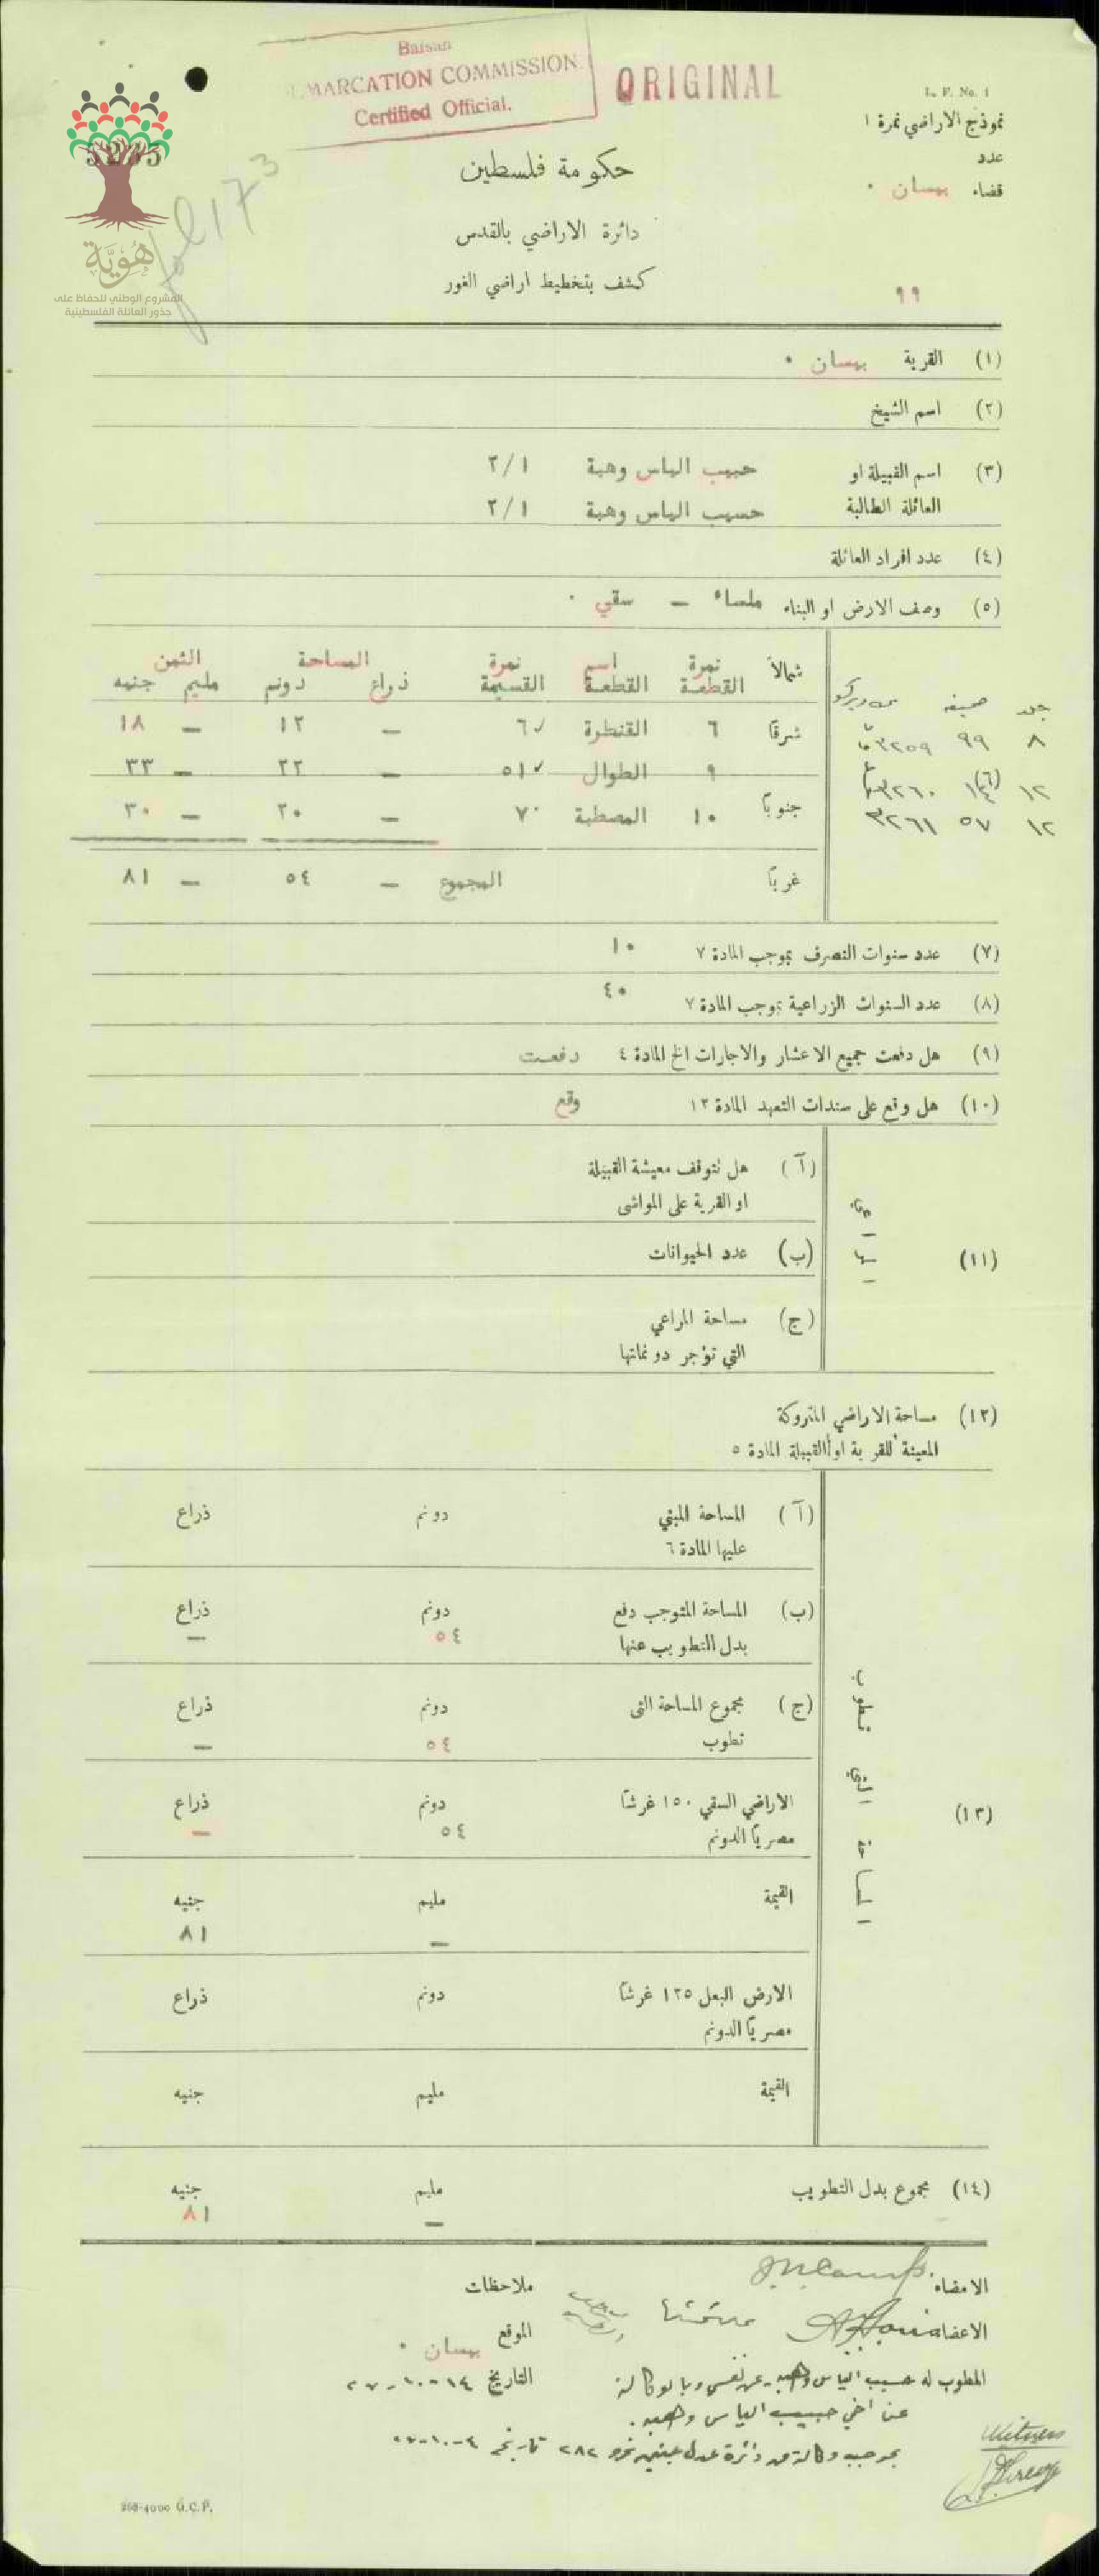 Baisan
DEMARCATION COMMISSION
Certified Official.
ORIGINAL
L. F. No. 1
نموذج الاراضي نمرة ١
عدد
قضاء بيسان ٠
حكومة فلسطين
دائرة الاراضي بالقدس
كشف بتخطيط اراضي الغور
٩٩
هُوِيَّة
المشروع الوطني للحفاظ على
جذور العائلة الفلسطينية
(١) القرية بيسان ٠
(٢) اسم الشيخ
(٣) اسم القبيلة او حبيب الياس وهبة ٢/١
العائلة الطالبة حسيب الياس وهبة ٢/١
(٤) عدد افراد العائلة
(٥) وصف الارض او البناء ملساء — سقي ٠
شمالاً نمرة القطعة اسم القطعة نمرة القسيمة المساحة ذراع دونم الثمن مليم جنيه
جلد صحيفة
٨ ٩٩ ٣٢٥٩ شرقاً ٦ القنطرة ٦ — ١٢ — ١٨
١٢ ٣٢٦٠ ٩ الطوال ٥١ — ٢٢ — ٣٣
١٢ ٥٧ ٣٢٦١ جنوباً ١٠ المصطبة ٧٠ — ٢٠ — ٣٠
غرباً المجموع — ٥٤ — ٨١
(٧) عدد سنوات التصرف بموجب المادة ٧ ١٠
(٨) عدد السنوات الزراعية بموجب المادة ٧ ٤٠
(٩) هل دفعت جميع الاعشار والاجارات الخ المادة ٤ دفعت
(١٠) هل وقع على سندات التعهد المادة ١٣ وقع
(١١)
(آ) هل تتوقف معيشة القبيلة
او القرية على المواشي
(ب) عدد الحيوانات
(ج) مساحة المراعي
التي تؤجر دونماتها
(١٢) مساحة الاراضي المتروكة
المعينة للقرية او القبيلة المادة ٥
(١٣) المساحة التي تطوب
(آ) المساحة المبني دونم ذراع
عليها المادة ٦
(ب) المساحة المتوجب دفع دونم ذراع
بدل التطويب عنها ٥٤ —
(ج) مجموع المساحة التي دونم ذراع
تطوب ٥٤ —
الاراضي السقي ١٥٠ غرشاً دونم ذراع
مصرياً الدونم ٥٤ —
القيمة مليم جنيه
— ٨١
الارض البعل ١٢٥ غرشاً دونم ذراع
مصرياً الدونم
القيمة مليم جنيه
(١٤) مجموع بدل التطويب مليم جنيه
— ٨١
الامضاء ملاحظات
الاعضاء الموقع بيسان ٠
المطوب له حسيب الياس وهبه عن نفسي وبالوكالة التاريخ ١٤-١٠-٢٧
عن اخي حبيب الياس وهبه.
بموجب وكالة من دائرة عدل جنين نمرو ٢٨٢ تاريخ ٤-١٠-٢٧
Witness
268-4000 G.C.P.